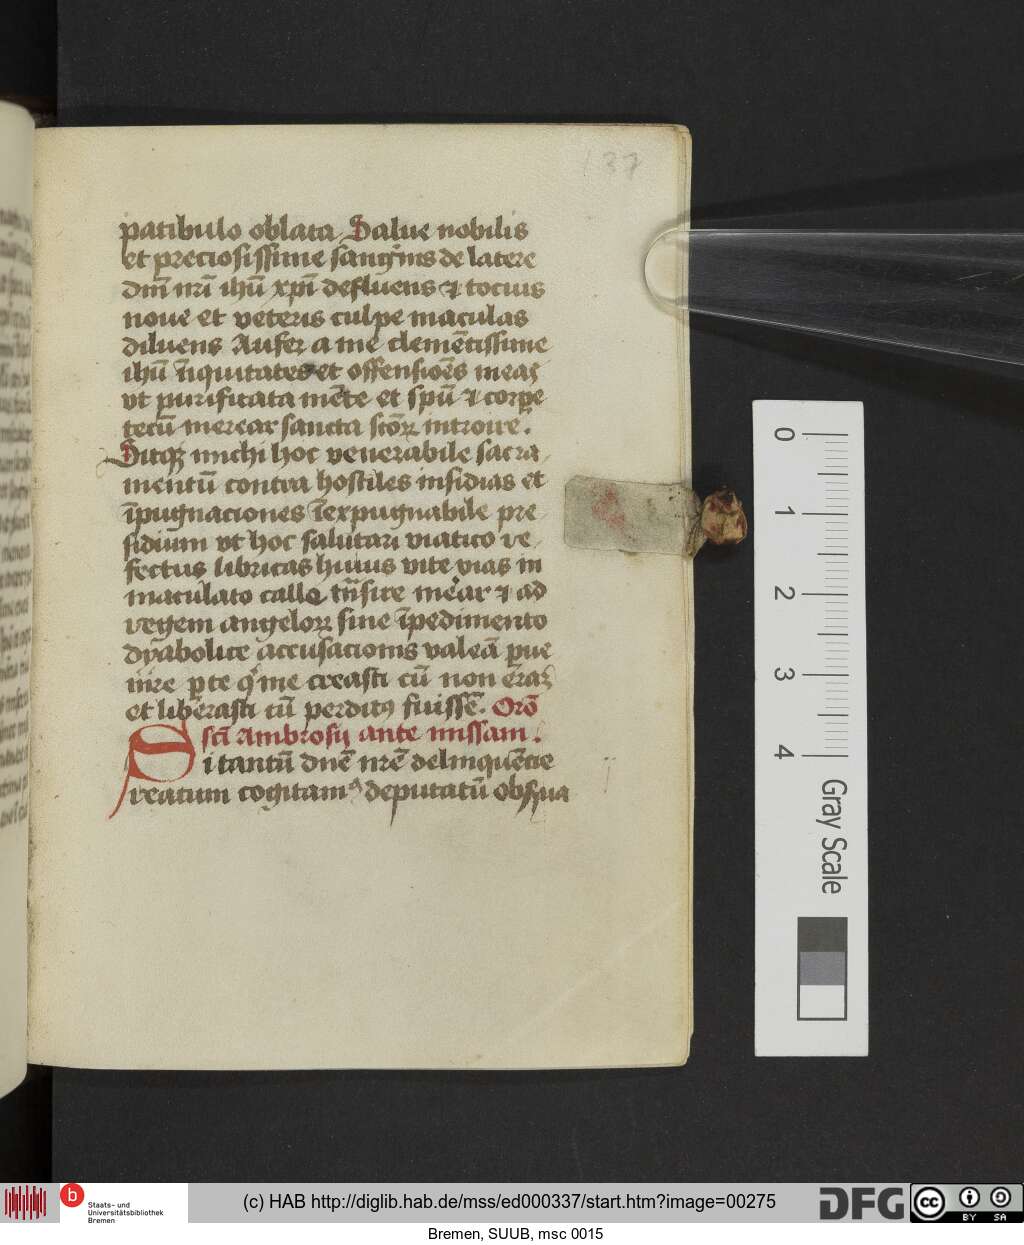 137
patibulo oblata Salue nobilis
et preciosissime sangͥnis de latere
dnī nrī ihū xpī defluens ⁊ tocius
noue et veteris culpe maculas
diluens Aufer a me clemētissime
ihū īiquitates et offensiōes meas
vt purificata mēte et spū ⁊ corpe
tecū merear sancta scōꝝ introire.
Sitqꝫ michi hoc venerabile sacra
mentū contra hostiles insidias et
īpugnaciones īexpugnabile pre
sidium vt hoc salutari viatico re
fectus libricas huius vite vias in
maculato calle trāsire mear ⁊ ad
regem angeloꝝ sine īpedimento
dyabolice accusacionis valeā ꝑue
nire p te qͥ me creasti cū non erāꝫ
et liberasti cū perditꝰ fuissē. Orō
scī Ambrosij ante missam.
Si tantū dnē nrē delinquētie
reatum cogitamꝰ deputatū obsqua
0
1
2
3
4
Gray Scale
b Staats- und
Universitätsbibliothek
Bremen
(c) HAB http://diglib.hab.de/mss/ed000337/start.htm?image=00275
DFG
cc BY SA
Bremen, SUUB, msc 0015